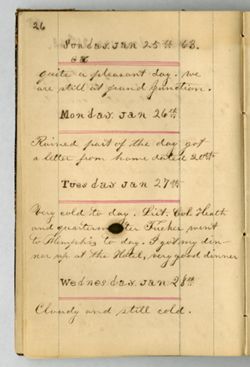 26
Sonday. Jan 25th 63.
quite a pleasant day. we
are still at grand junction.
Monday. Jan 26th
Rained part of the day got
a letter from home dated 20th
Tuesday Jan 27th
Very cold to day. Liut. Col. Heath
and quartermaster Tucker went
to Memphis to day. I got my din-
ner up at the Hotel, very good dinner
Wednesday. Jan 28th
Cloudy and still cold.